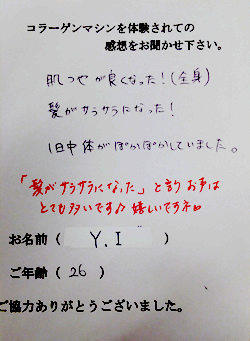 コラーゲンマシンを体験されての
感想をお聞かせ下さい。
肌つやが良くなった！(全身)
髪がサラサラになった！
1日中体がぽかぽかしていました。
「髪がサラサラになった」と言う お声は
とても多いです♪ 嬉しいですネ。
お名前（ Y.I ）
ご年齢（ 26 ）
ご協力ありがとうございました。